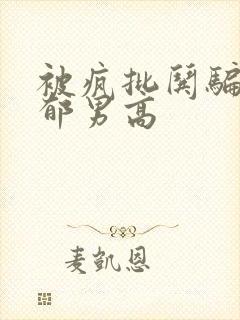 被疯批哭骗
郁男高
麦凯恩